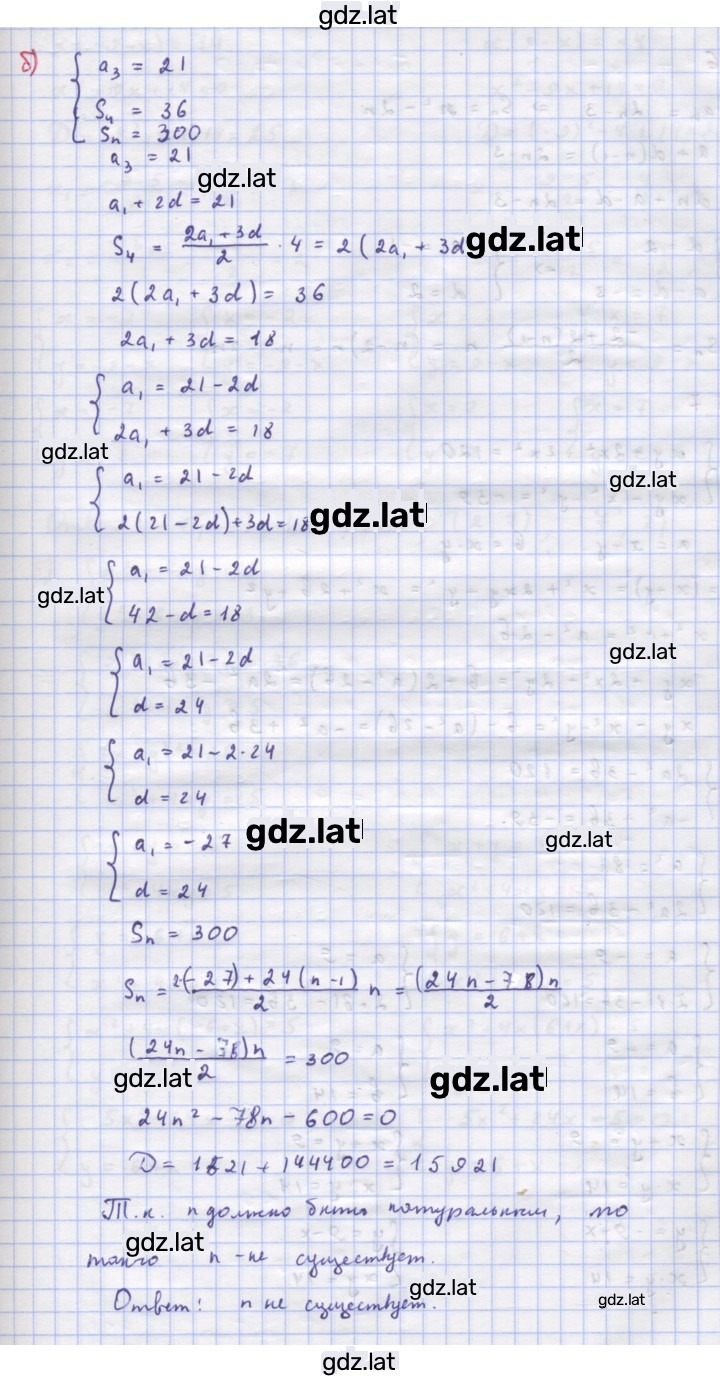 gdz.lat
б) a₃ = 21
S₄ = 36
Sₙ = 300
a₃ = 21
gdz.lat
a₁ + 2d = 21
S₄ = (2a₁ + 3d)/2 · 4 = 2(2a₁ + 3d gdz.lat
2(2a₁ + 3d) = 36
2a₁ + 3d = 18
{ a₁ = 21 - 2d
2a₁ + 3d = 18
gdz.lat
{ a₁ = 21 - 2d
gdz.lat
2(21 - 2d) + 3d = 18 gdz.lat
{ a₁ = 21 - 2d
gdz.lat
42 - d = 18
{ a₁ = 21 - 2d
gdz.lat
d = 24
{ a₁ = 21 - 2·24
d = 24
{ a₁ = -27 gdz.lat
gdz.lat
d = 24
Sₙ = 300
Sₙ = (2(-27) + 24(n-1))/2 n = ((24n - 78)n)/2
((24n - 78)n)/2 = 300
gdz.lat gdz.lat
24n² - 78n - 600 = 0
D = 1521 + 144400 = 15921
Т.к. n должно быть натуральным, то
gdz.lat
такого n - не существует.
gdz.lat
Ответ: n не существует.
gdz.lat
gdz.lat